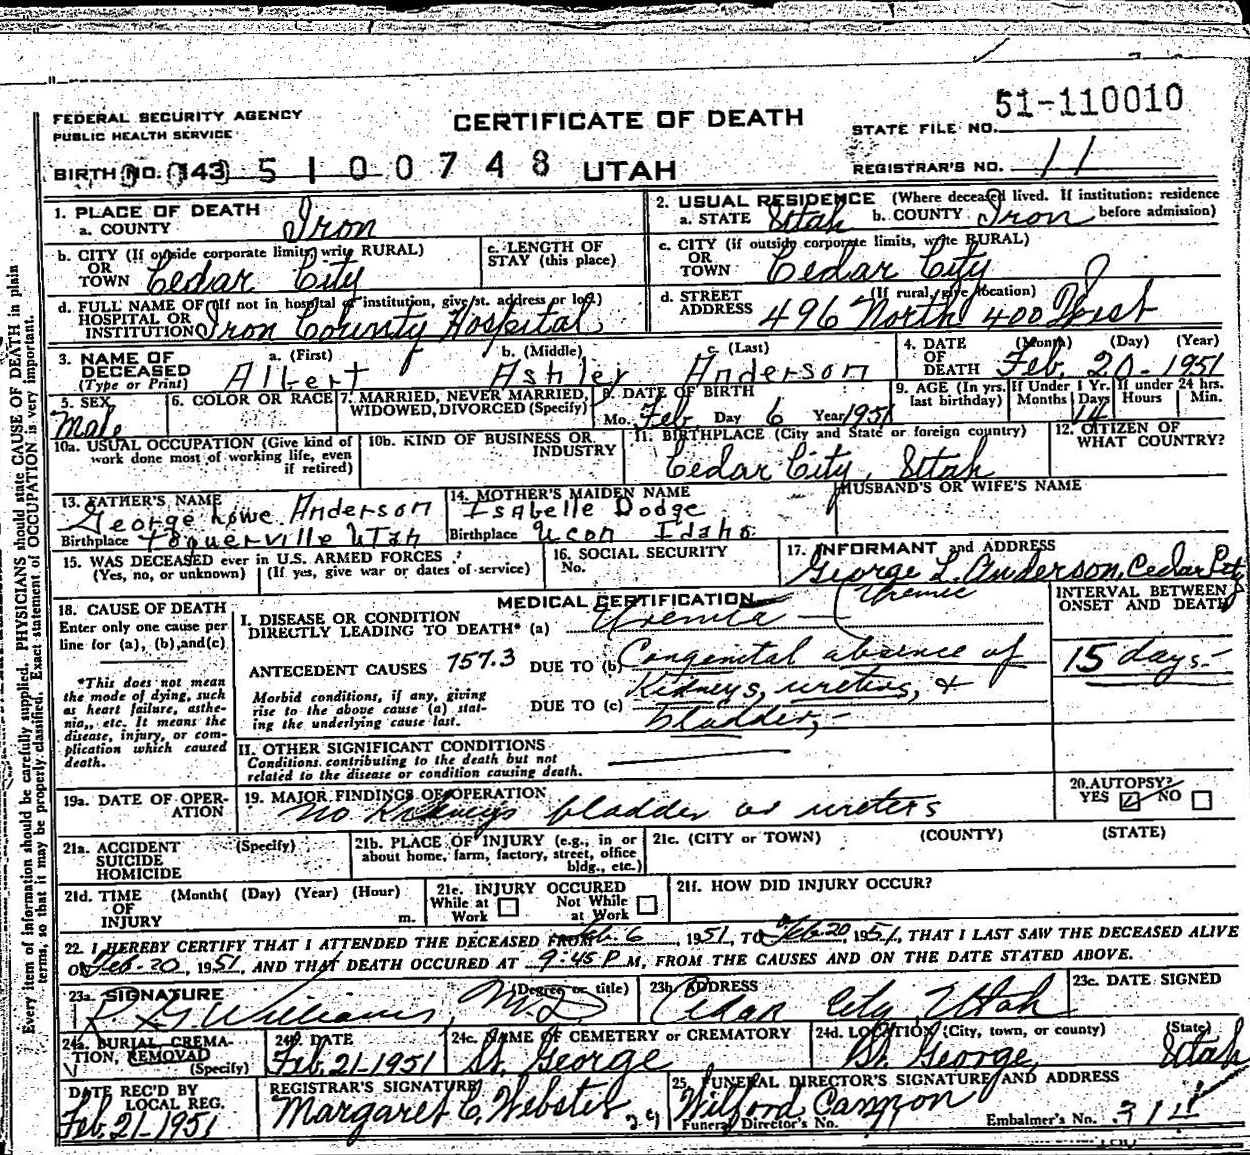 51-110010
FEDERAL SECURITY AGENCY
PUBLIC HEALTH SERVICE
CERTIFICATE OF DEATH
STATE FILE NO.
BIRTH NO. 143 5100748 UTAH
REGISTRAR'S NO. 11
1. PLACE OF DEATH
a. COUNTY Iron
2. USUAL RESIDENCE (Where deceased lived. If institution: residence before admission)
a. STATE Utah b. COUNTY Iron
b. CITY (If outside corporate limits, write RURAL)
OR
TOWN Cedar City
c. LENGTH OF
STAY (this place)
c. CITY (if outside corporate limits, write RURAL)
OR
TOWN Cedar City
d. FULL NAME OF (If not in hospital or institution, give st. address or loc.)
HOSPITAL OR
INSTITUTION Iron County Hospital
d. STREET (If rural, give location)
ADDRESS 496 North 400 West
3. NAME OF
DECEASED
(Type or Print)
a. (First) b. (Middle) c. (Last)
Albert Ashley Anderson
4. DATE (Month) (Day) (Year)
OF
DEATH Feb. 20-1951
5. SEX
Male
6. COLOR OR RACE
7. MARRIED, NEVER MARRIED,
WIDOWED, DIVORCED (Specify)
8. DATE OF BIRTH
Mo. Feb. Day 6 Year 1951
9. AGE (In yrs. last birthday)
If Under 1 Yr. Months Days 14
If under 24 hrs. Hours Min.
10a. USUAL OCCUPATION (Give kind of
work done most of working life, even
if retired)
10b. KIND OF BUSINESS OR
INDUSTRY
11. BIRTHPLACE (City and State or foreign country)
Cedar City, Utah
12. CITIZEN OF
WHAT COUNTRY?
13. FATHER'S NAME
George Lowe Anderson
Birthplace Toquerville Utah
14. MOTHER'S MAIDEN NAME
Isabelle Dodge
Birthplace Ucon Idaho
HUSBAND'S OR WIFE'S NAME
15. WAS DECEASED ever in U.S. ARMED FORCES?
(Yes, no, or unknown) (If yes, give war or dates of service)
16. SOCIAL SECURITY
No.
17. INFORMANT and ADDRESS
George L. Anderson, Cedar City
MEDICAL CERTIFICATION
18. CAUSE OF DEATH
Enter only one cause per
line for (a), (b), and (c)
*This does not mean
the mode of dying, such
as heart failure, asthe-
nia, etc. It means the
disease, injury, or com-
plication which caused
death.
I. DISEASE OR CONDITION
DIRECTLY LEADING TO DEATH* (a) Uremia (Uremic
ANTECEDENT CAUSES 757.3 DUE TO (b) Congenital absence of
Kidneys, ureters, &
Morbid conditions, if any, giving
rise to the above cause (a) stat-
ing the underlying cause last.
DUE TO (c) bladder,-
INTERVAL BETWEEN
ONSET AND DEATH
15 days.-
II. OTHER SIGNIFICANT CONDITIONS
Conditions contributing to the death but not
related to the disease or condition causing death.
19a. DATE OF OPER-
ATION
19. MAJOR FINDINGS OF OPERATION
No Kidneys bladder or ureters
20. AUTOPSY?
YES NO
21a. ACCIDENT (Specify)
SUICIDE
HOMICIDE
21b. PLACE OF INJURY (e.g., in or
about home, farm, factory, street, office
bldg., etc.)
21c. (CITY or TOWN) (COUNTY) (STATE)
21d. TIME (Month) (Day) (Year) (Hour)
OF
INJURY m.
21e. INJURY OCCURED
While at Work Not While at Work
21f. HOW DID INJURY OCCUR?
22. I HEREBY CERTIFY THAT I ATTENDED THE DECEASED FROM Feb. 6, 1951, TO Feb-20, 1951, THAT I LAST SAW THE DECEASED ALIVE
ON Feb-20, 1951, AND THAT DEATH OCCURED AT 9:45 P M, FROM THE CAUSES AND ON THE DATE STATED ABOVE.
23a. SIGNATURE (Degree or title)
R G Williams, M.D.
23b ADDRESS
Cedar City, Utah
23c. DATE SIGNED
24a. BURIAL, CREMA-
TION, REMOVAL
(Specify)
24b. DATE
Feb. 21-1951
24c. NAME OF CEMETERY OR CREMATORY
St. George
24d. LOCATION (City, town, or county) (State)
St. George, Utah
DATE REC'D BY
LOCAL REG.
Feb. 21-1951
REGISTRAR'S SIGNATURE
Margaret C. Webster
29
25. FUNERAL DIRECTOR'S SIGNATURE AND ADDRESS
Wilford Cannon
Funeral Director's No. Embalmer's No. 311
Every item of information should be carefully supplied. PHYSICIANS should state CAUSE OF DEATH in plain
terms, so that it may be properly classified. Exact statement of OCCUPATION is very important.